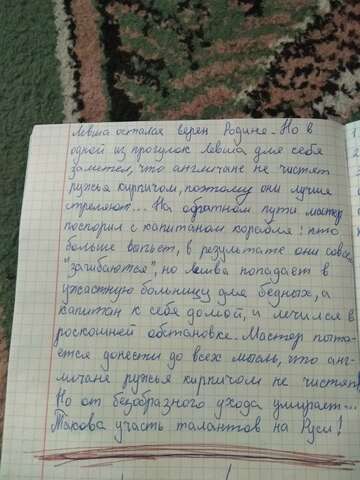 Левша остался верен Родине. Но в
одной из прогулок Левша для себя
заметил, что англичане не чистят
ружья кирпичом, поэтому они лучше
стреляют... На обратном пути мастер
поспорил с капитаном корабля: кто
больше выпьет, в результате они совсем
"зашибаются", но Левша попадает в
ужастную больницу для бедных, а
капитан к себе домой, и лечился в
роскошней обстановке. Мастер пыта-
ется донести до всех мысль, что анг-
личане ружья кирпичом не чистят!
Но от безобразного ухода умирает...
Такова участь талантов на Руси!